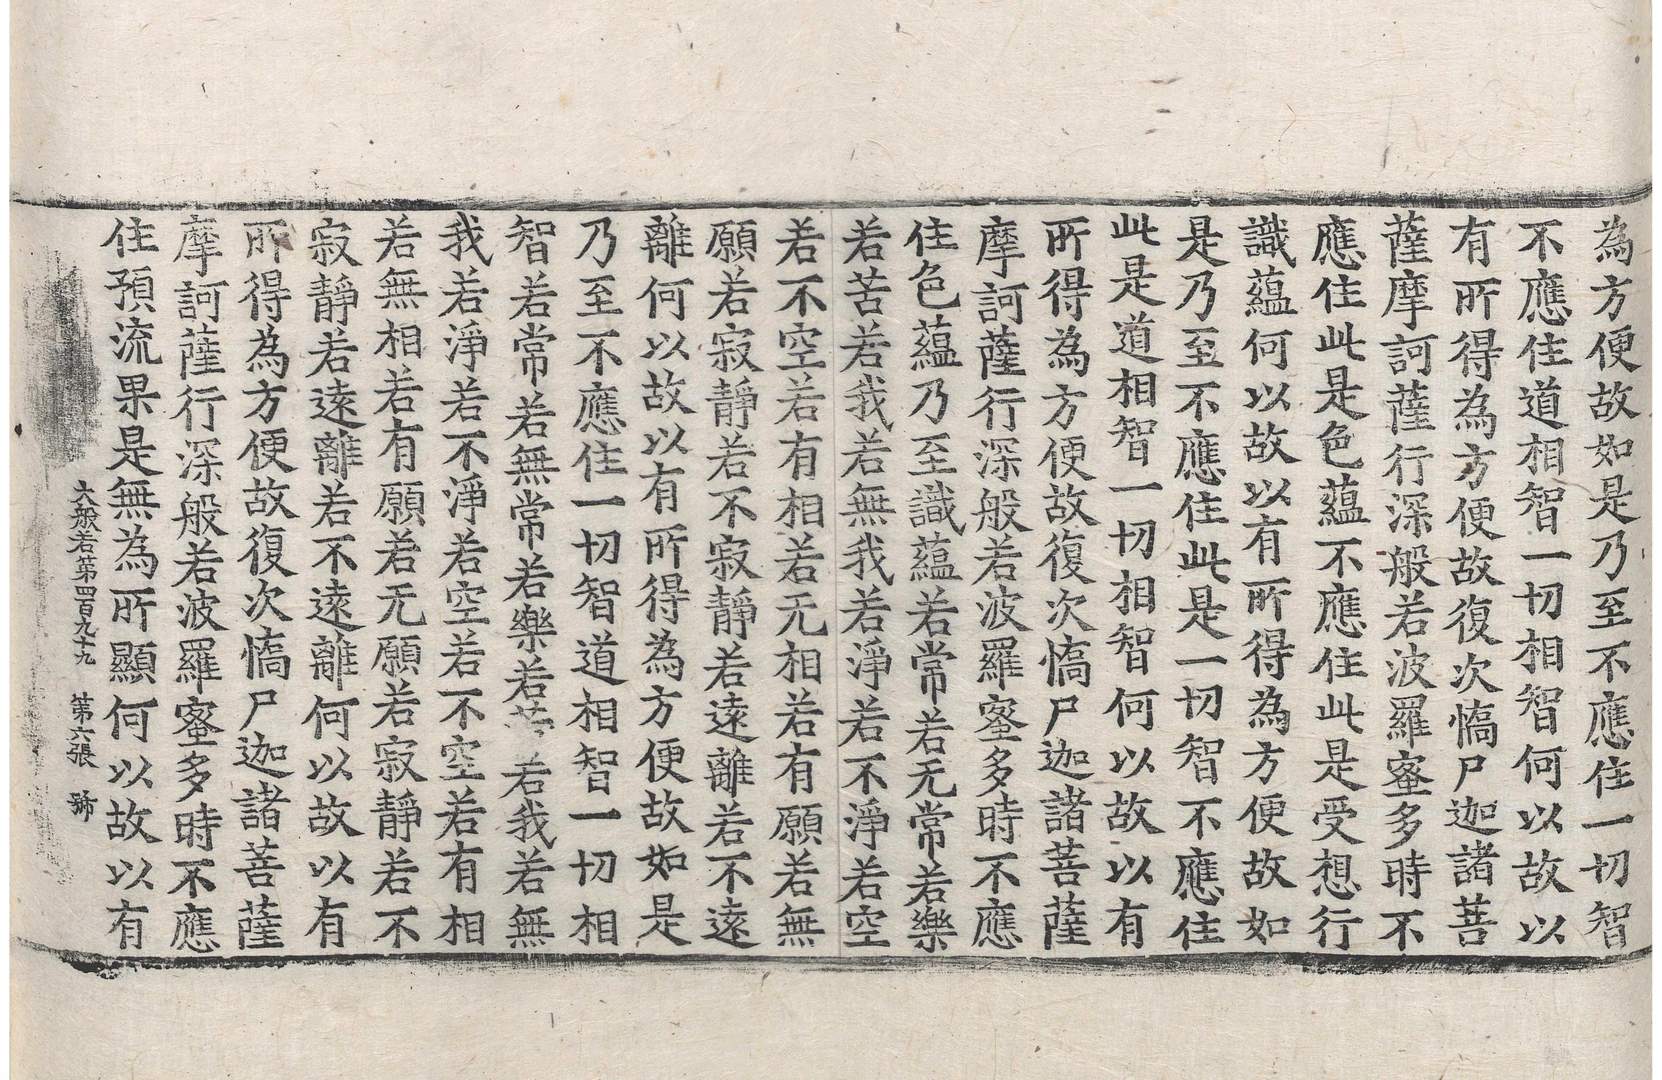 為方便故如是乃至不應住一切智
不應住道相智一切相智何以故以
有所得為方便故復次憍尸迦諸菩
薩摩訶薩行深般若波羅蜜多時不
應住此是色蘊不應住此是受想行
識蘊何以故以有所得為方便故如
是乃至不應住此是一切智不應住
此是道相智一切相智何以故以有
所得為方便故復次憍尸迦諸菩薩
摩訶薩行深般若波羅蜜多時不應
住色蘊乃至識蘊若常若无常若樂
若苦若我若無我若淨若不淨若空
若不空若有相若无相若有願若無
願若寂靜若不寂靜若遠離若不遠
離何以故以有所得為方便故如是
乃至不應住一切智道相智一切相
智若常若無常若樂若苦若我若無
我若淨若不淨若空若不空若有相
若無相若有願若无願若寂靜若不
寂靜若遠離若不遠離何以故以有
所得為方便故復次憍尸迦諸菩薩
摩訶薩行深般若波羅蜜多時不應
住預流果是無為所顯何以故以有
大般若第四百九十九 第六張 號